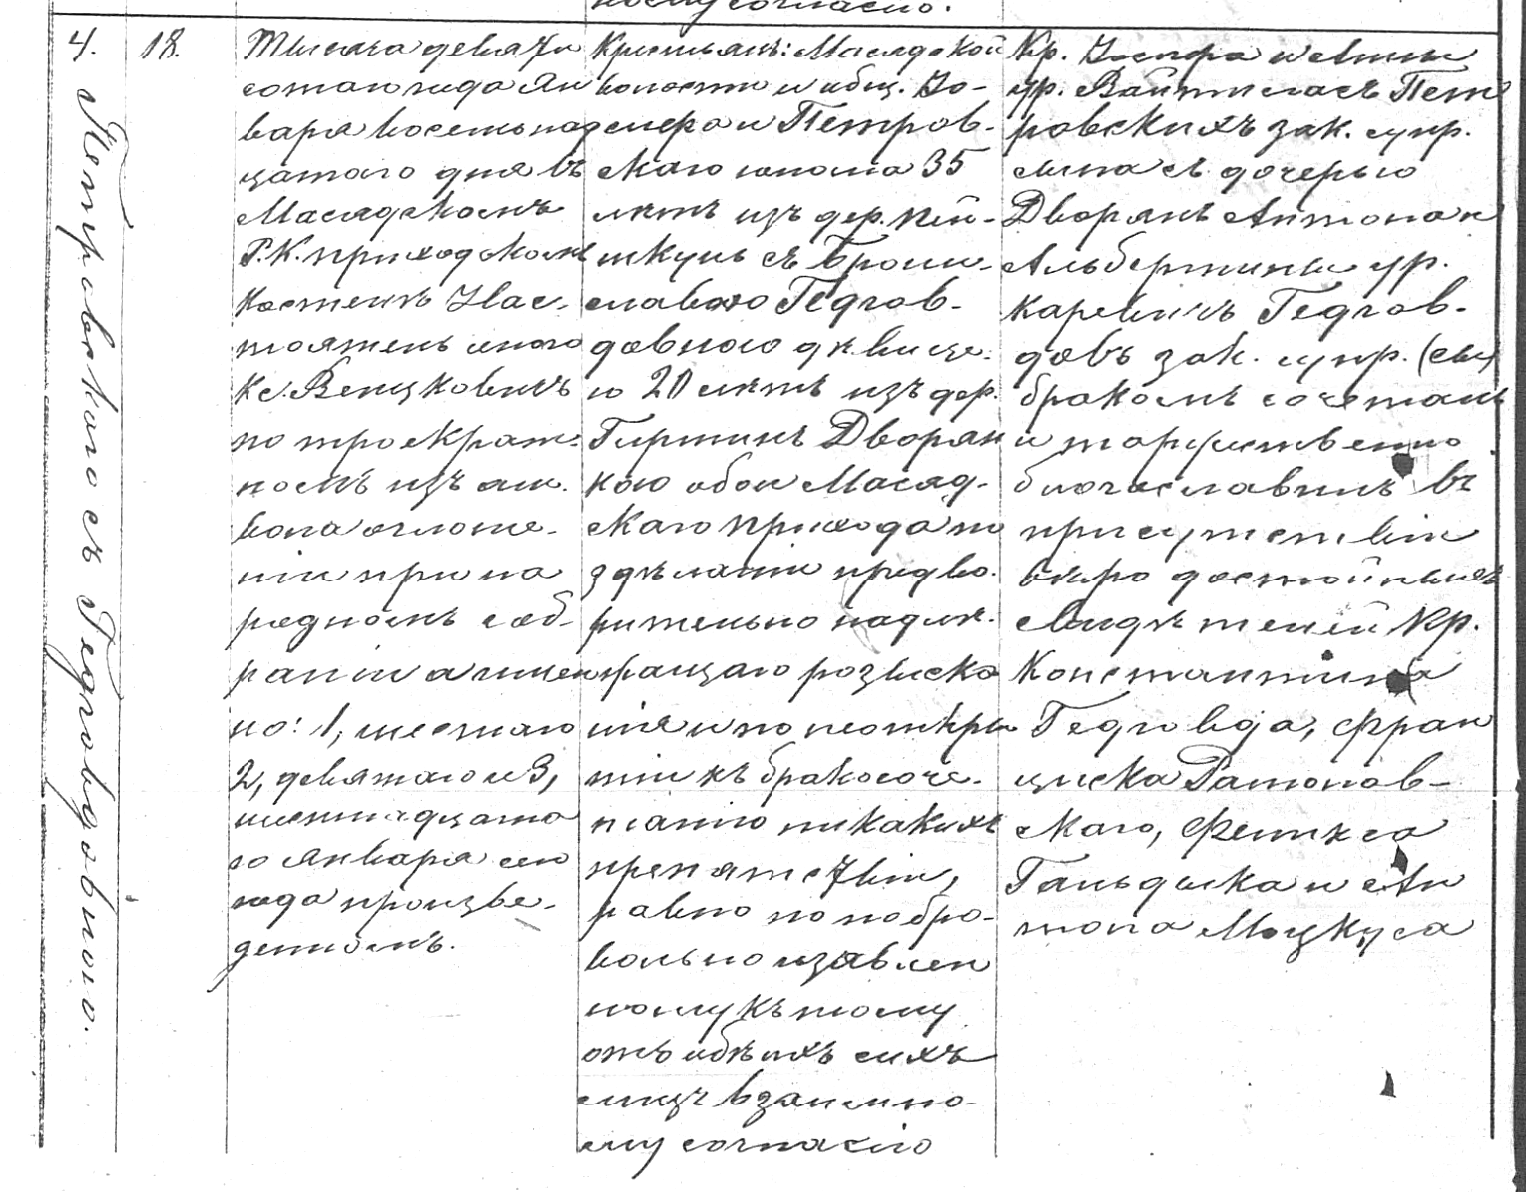 ному согласію.
4.
18.
Петровскаго съ Гедговдовною.
Тысяча девять
сотаго года Ян
варя восемьнад
цатаго дня въ
Масядскомъ
Р.К. приходскомъ
Костелѣ Нас-
тоятель онаго
Кс. Венцковичъ
по троекрат-
номъ изъ ам-
вона оглаше-
ніи при на
родномъ соб-
раніи а имен
но: 1, шестаго
2, девятаго и 3,
шестнадцата
го Января сего
года произве-
денномъ.
Крестьянъ: Масядской
волости и общ. Іо-
сифа Петров-
скаго юноша 35
лѣтъ изъ дер. Кей-
шкунъ съ Брони-
славою Гедгов-
довною дѣвице-
ю 20 лѣтъ изъ дер.
Гиртикъ Дворян
кою обои Масяд-
скаго прихода по
здѣланіи предво-
рительно надле-
жащаго розыска
нія и по неоткры
тіи къ бракосоче-
танію никакихъ
препятствій,
равно по добро-
вольно изявлен
ному къ тому
отъ обѣихъ сихъ
лицъ взаимно-
му согласію
Кр. Іосифа и Анны
ур. Вайткелосъ Пет
ровскихъ зак. супр.
сына съ дочерью
Дворянъ Антона и
Альбертины ур.
Каревичъ Гедгов-
довъ зак. супр. (сы)
бракомъ сочеталъ
и торжественно
благословилъ въ
присутствіи
вѣро достойныхъ
свидѣтелей Кр.
Константина
Гедговда, Фран
циска Ратонов-
скаго, Феликса
Гальдыка и Ан
тона Моцкуса